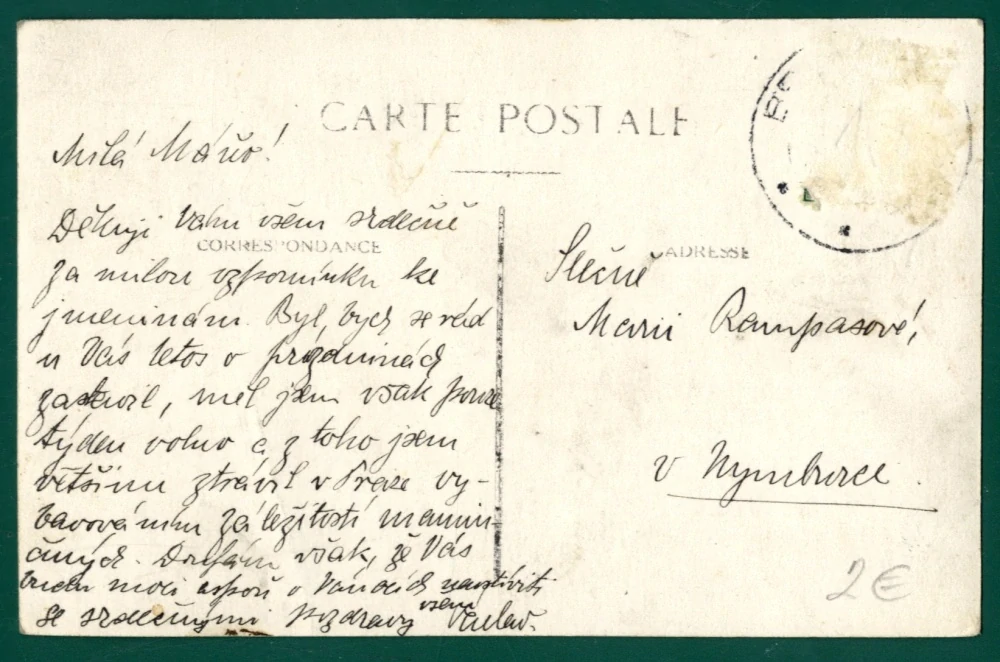 CARTE POSTALE
Milá Mářo!
Děkuji Vám všem srdečně
CORRESPONDANCE
za milou vzpomínku ke
jmeninám. Byl bych se rád
u Vás letos o prázdninách
zastavil, měl jsem však pouze
týden volno a z toho jsem
většinu ztrávil v Praze vy-
bavováním záležitostí mamin-
činých. Doufám však, že Vás
budu moci aspoň o Vánocích navštíviti
se srdečnými pozdravy všem Václav.
ADRESSE
Slečně
Marii Rampasové,
v Nymburce.
2€